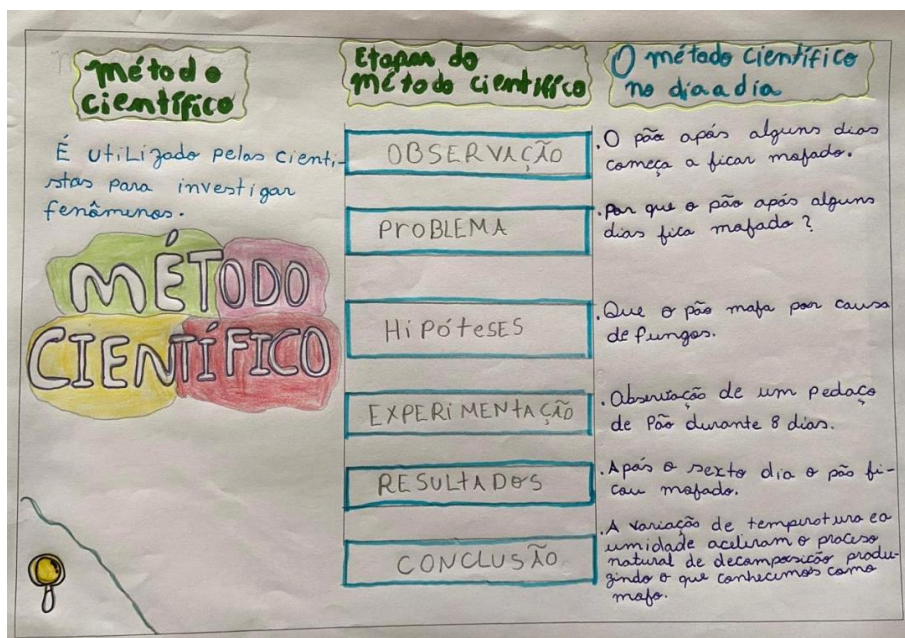 método
científico
É utilizado pelas cienti-
stas para investigar
fenômenos.
MÉTODO
CIENTÍFICO
Etapas do
método científico
OBSERVAÇÃO
PROBLEMA
HIPÓTESES
EXPERIMENTAÇÃO
RESULTADOS
CONCLUSÃO
O método científico
no dia a dia
.O pão após alguns dias
começa a ficar mofado.
.Por que o pão após alguns
dias fica mofado?
.Que o pão mofa por causa
de fungos.
.Observação de um pedaço
de Pão durante 8 dias.
.Após o sexto dia o pão fi-
cou mofado.
.A variação de temperatura e a
umidade aceleram o processo
natural de decomposição produ-
zindo o que conhecemos como
mofo.